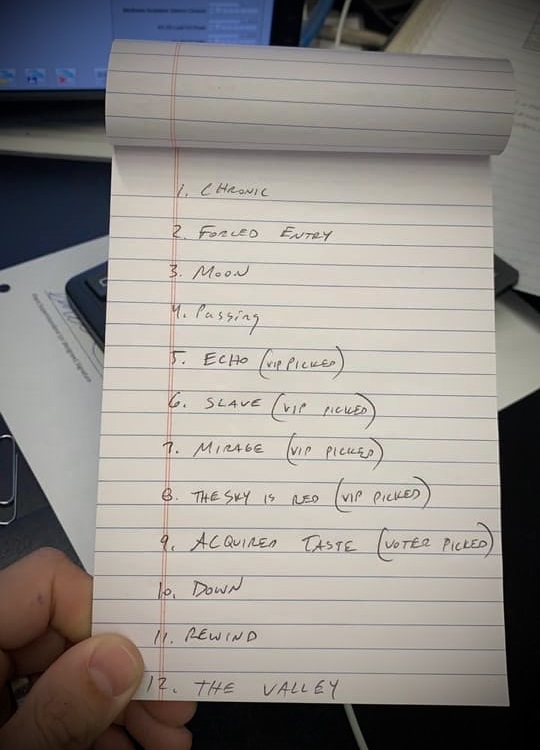 1. CHRONIC
2. FORCED ENTRY
3. MOON
4. Passing
5. ECHO (VIP PICKED)
6. SLAVE (VIP PICKED)
7. MIRAGE (VIP PICKED)
8. THE SKY IS RED (VIP PICKED)
9. ACQUIRED TASTE (VOTER PICKED)
10. DOWN
11. REWIND
12. THE VALLEY